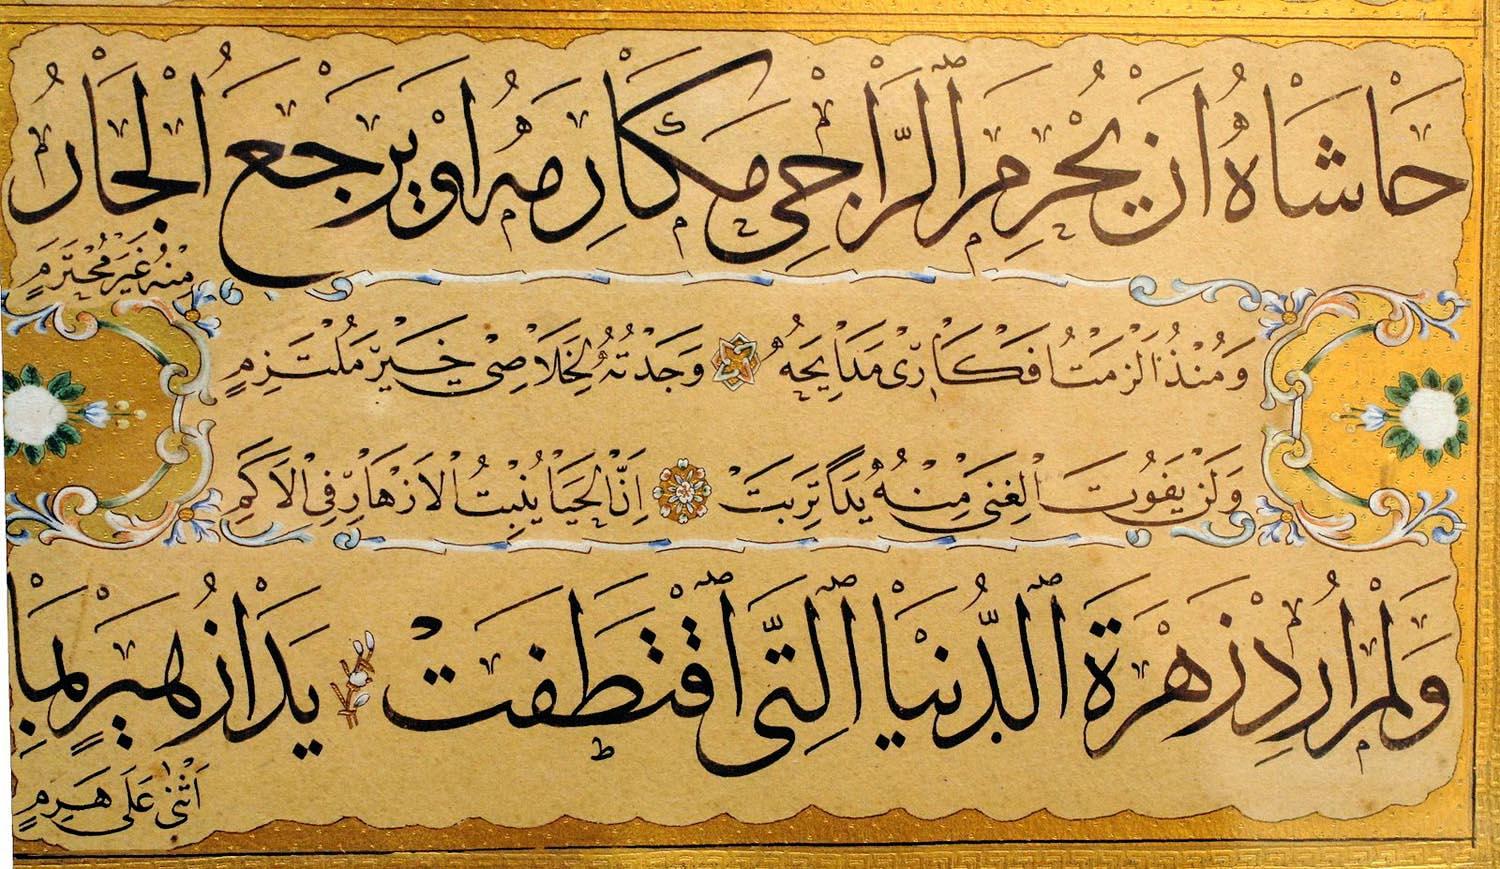 حَاشَاهُ اَنْ يُحْرِمَ الرَّاجِي مَكَارِمَهُ اَوْ يَرْجَعَ الْجَارُ
مِنْهُ غَيْرَ مُحْتَرَمٍ
وَمُنْذُ اَلْزَمْتُ اَفْكَارِي مَدَايِحَهُ وَجَدْتُهُ لِخَلَاصِي خَيْرَ مُلْتَزِمٍ
وَلَنْ يَفُوتَ الْغِنَى مِنْهُ يَدًا تَرِبَتْ اِنَّ الْحَيَا يُنْبِتُ الْاَزْهَارَ فِي الْاَكَمِ
وَلَمْ اُرِدْ زَهْرَةَ الدُّنْيَا الَّتِي اقْتَطَفَتْ يَدَا زُهَيْرٍ بِمَا
اَثْنَى عَلَى هَرِمٍ